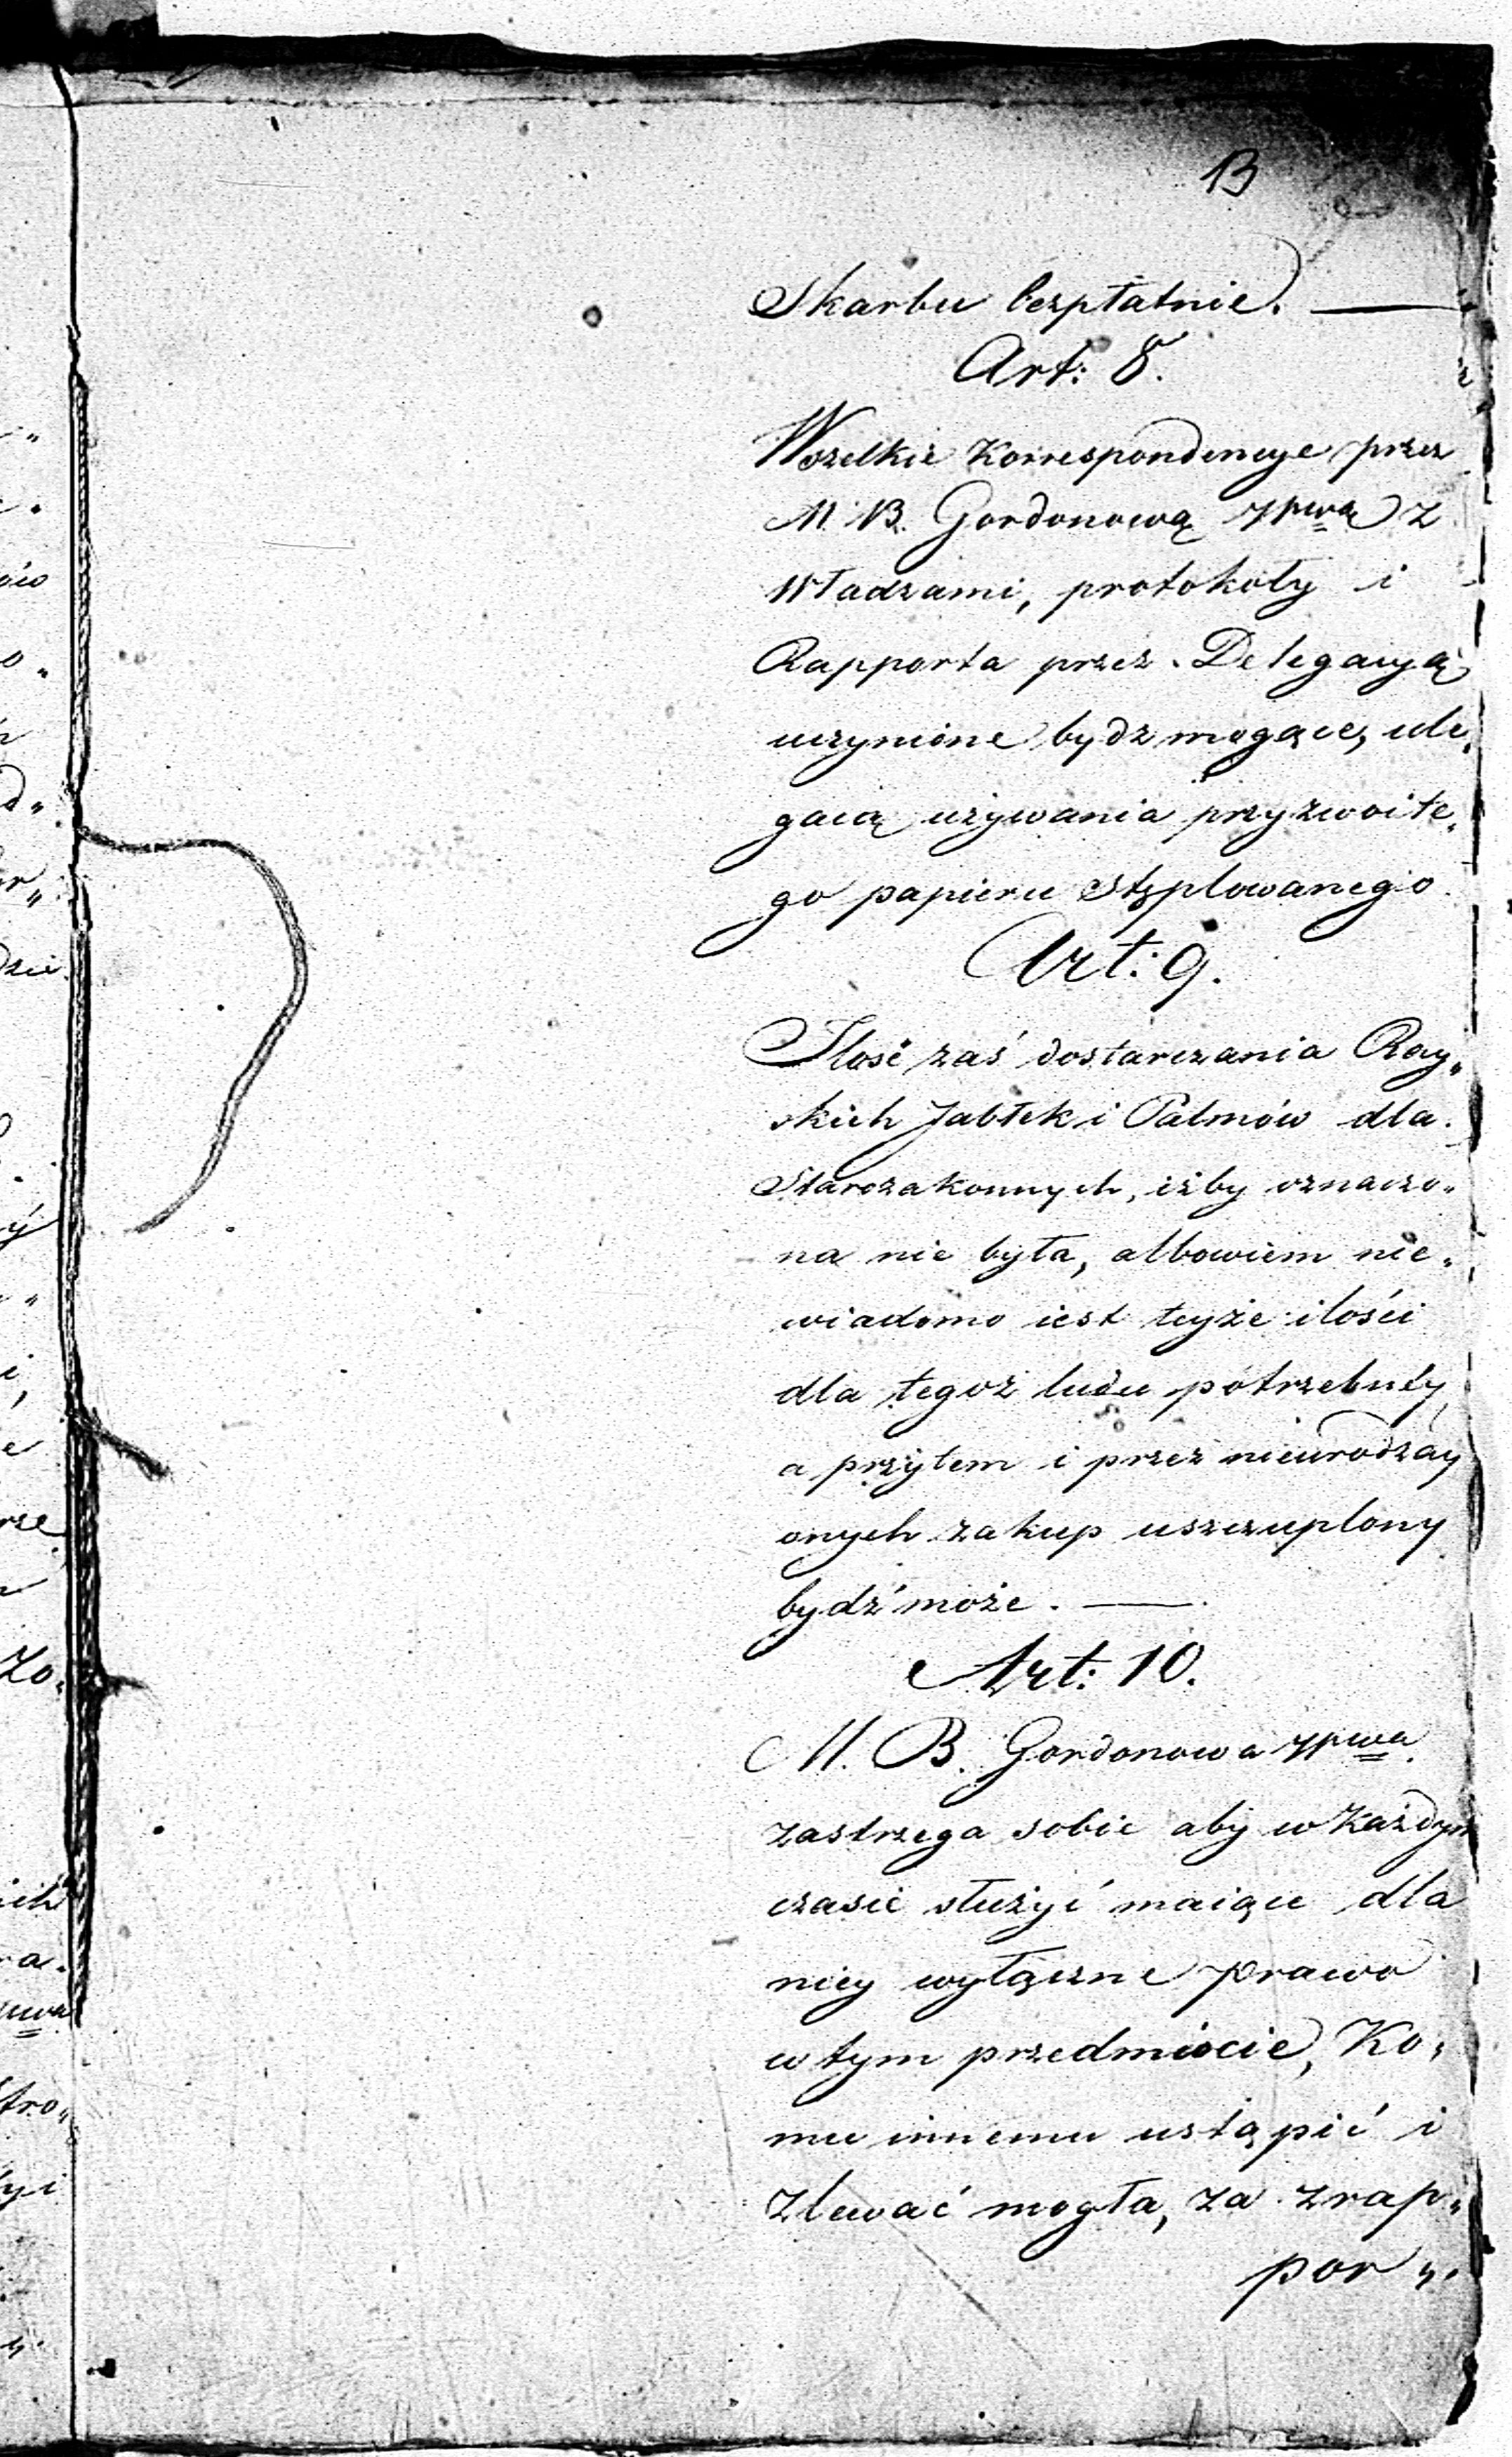 13
Skarbu bezpłatnie. —
Art: 8.
Wszelkie Korrespondencye przez
M. B. Gordonową z
Władzami, protokoły i
Rapporta przez Delegacyą
uczynione bydz mogące, ule„
gaią używania przyzwoite„
go papieru stęplowanego
Art: 9.
Ilość zaś dostarczania Ray„
skich Jabłek i Palmów dla
Starozakonnych, iżby oznaczo„
na nie była, albowiem nie„
wiadomo iest teyże ilości
dla tegoż ludu potrzebney,
a przytem i przez nieurodzay
onych zakup uszczuplony
bydź może. —
Art: 10.
M. B. Gordonowa
zastrzega sobie aby w każdym
czasie służyć maiące dla
niey wyłączne prawo
w tym przedmiocie, Ko„
mu innemu ustąpić i
zlewać mogła, za zrap„
por„